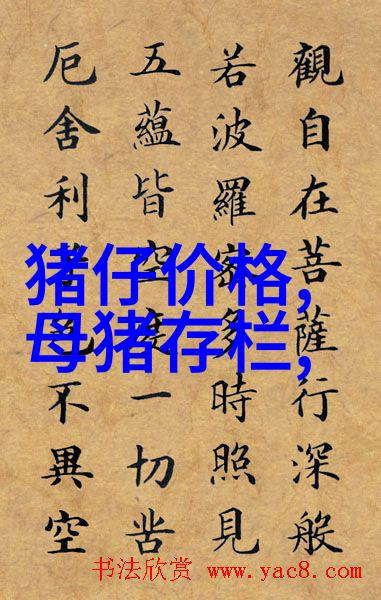 觀自在菩薩行深般
若波羅密多時照見
五蘊皆空度一切苦
厄舍利子色不異空
猪仔价格,
母猪存栏,
书法欣赏 www.yac8.com